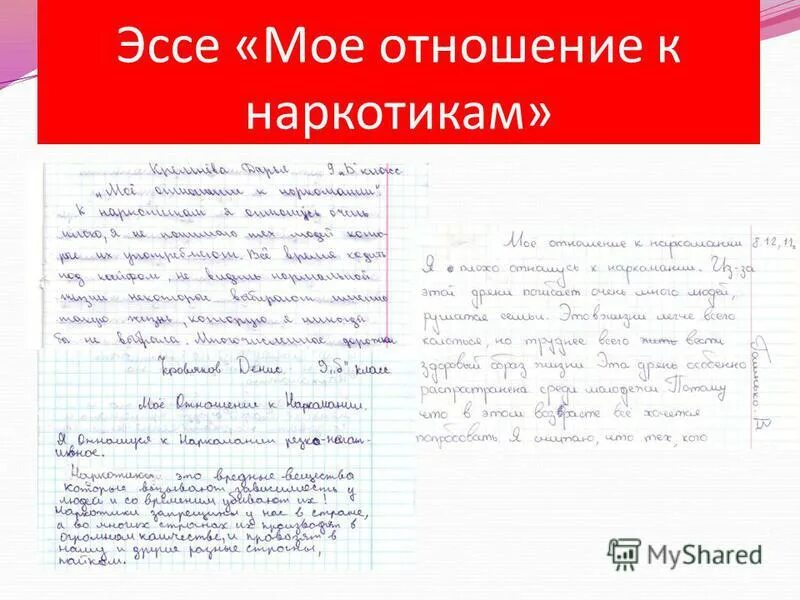 Эссе «Мое отношение к
наркотикам»
9 „Б" класс
„Моё отношение к наркомании"
К наркотикам я отношусь очень
плохо, я не понимаю тех людей кото-
рые их употребляют. Всё время ходить
под кайфом, не видить нормальной
жизни некоторые выбирают именно
такую жизнь, которую я никогда
бы не выбрала. Многочисленные дорожки
Денис 9 „б" класс
Моё Отношение к Наркомании.
Я Отношуся к Наркомании резко-негат-
ивное.
Наркотики это вредные вещества
которые вызывают зависимость у
людей и со временим убивают их!
Наркотики запрещины у нас в стране,
а во многих странах их производят в
огромном каличестве, и провозят в
нашу и другие разные страны,
Мое отношение к наркомании 8.12.11г
Я плохо отношусь к наркомании. Из-за
этой дряни погибает очень много людей,
рушатся семьи. Это в жизни легче всего
колоться, но труднее всего вести
здоровый образ жизни Эта дрянь особенно
распространена среди молодежи Потому
что в этом возрасте всё хочется
попробовать. Я считаю, что тех, кого
MyShared